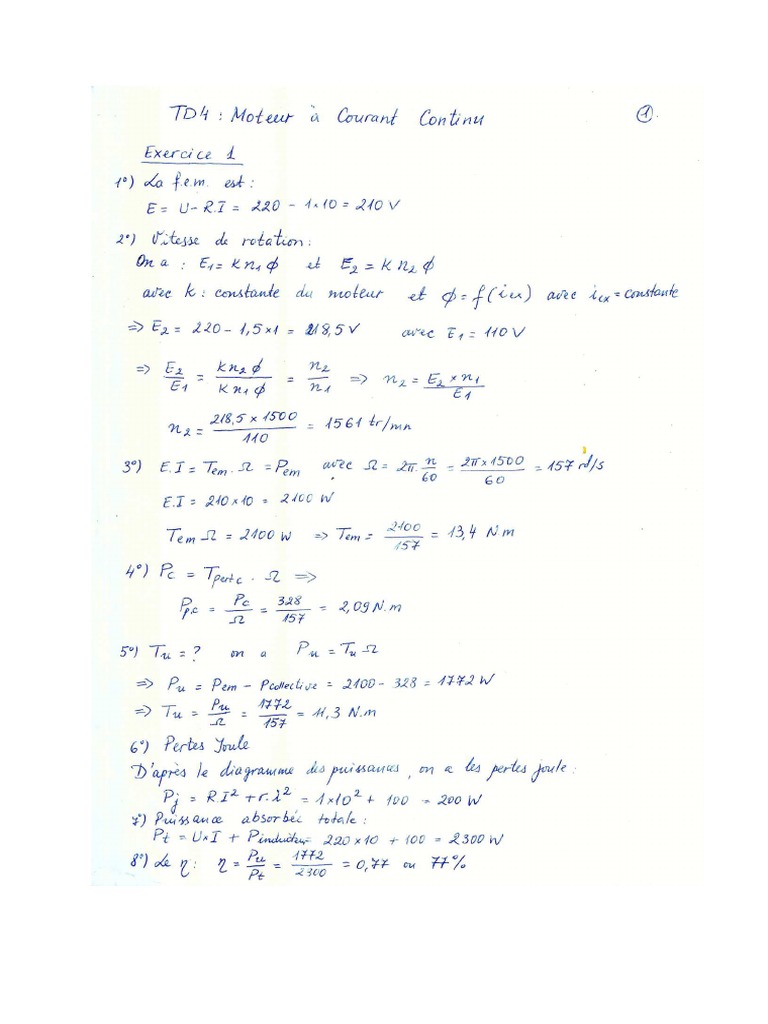 TD4 : Moteur à Courant Continu
1
Exercice 1
1°) La f.e.m. est :
E = U - R.I = 220 - 1×10 = 210 V
2°) Vitesse de rotation :
On a : E1 = K n1 ϕ et E2 = K n2 ϕ
avec K : constante du moteur et ϕ = f(iex) avec iex = constante
=> E2 = 220 - 1,5×1 = 218,5 V avec E1 = 110 V
=> E2/E1 = K n2 ϕ / K n1 ϕ = n2/n1 => n2 = E2 × n1 / E1
n2 = 218,5 × 1500 / 110 = 1561 tr/mn
3°) E.I = Tem . Ω = Pem avec Ω = 2π . n/60 = 2π×1500/60 = 157 rd/s
E.I = 210×10 = 2100 W
Tem Ω = 2100 W => Tem = 2100/157 = 13,4 N.m
4°) Pc = Tpertc . Ω =>
Pp.c = Pc/Ω = 328/157 = 2,09 N.m
5°) Tu = ? on a Pu = Tu Ω
=> Pu = Pem - Pcollective = 2100 - 328 = 1772 W
=> Tu = Pu/Ω = 1772/157 = 11,3 N.m
6°) Pertes Joule
D'après le diagramme des puissances, on a les pertes joule :
Pj = R.I² + r.i² = 1×10² + 100 = 200 W
7°) Puissance absorbée totale :
Pt = U×I + Pinducteur 220×10 + 100 = 2300 W
8°) Le η : η = Pu/Pt = 1772/2300 = 0,77 ou 77%